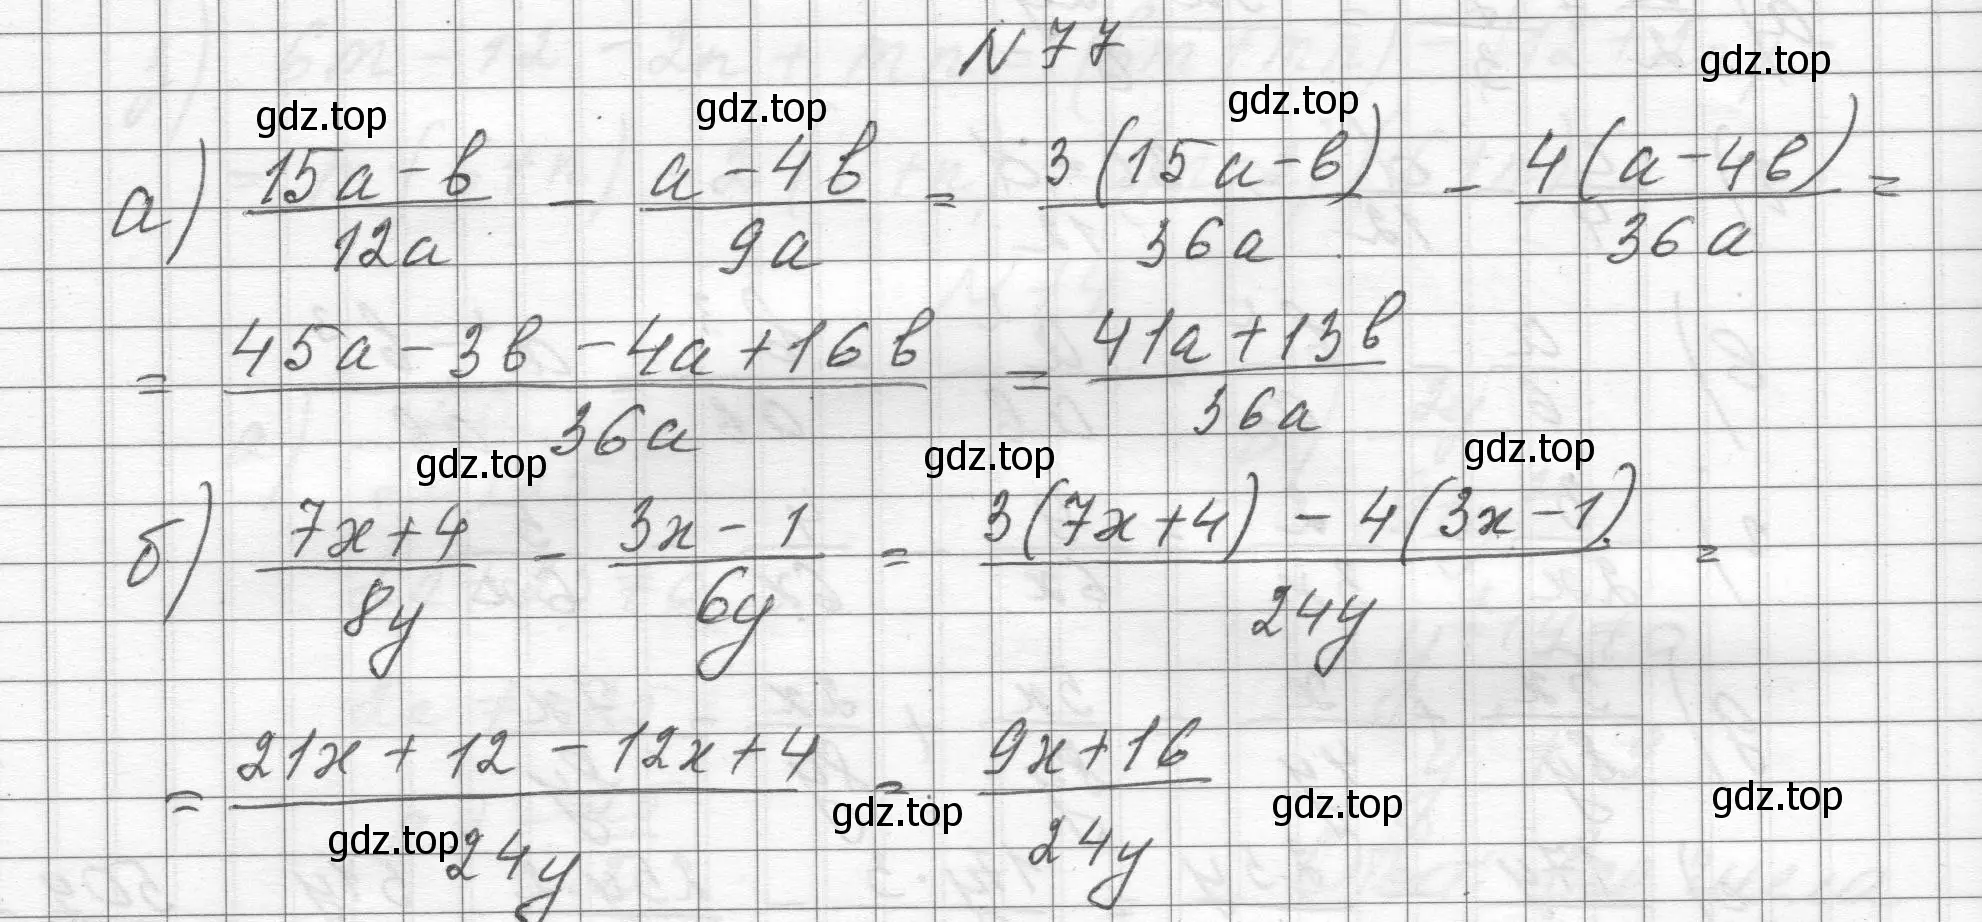 N 77
gdz.top
gdz.top gdz.top gdz.top
а) (15a-b)/(12a) - (a-4b)/(9a) = (3(15a-b))/(36a) - (4(a-4b))/(36a) =
= (45a-3b-4a+16b)/(36a) = (41a+13b)/(36a)
gdz.top gdz.top gdz.top
б) (7x+4)/(8y) - (3x-1)/(6y) = (3(7x+4)-4(3x-1))/(24y) =
= (21x+12-12x+4)/(24y) = (9x+16)/(24y)
gdz.top gdz.top gdz.top gdz.top